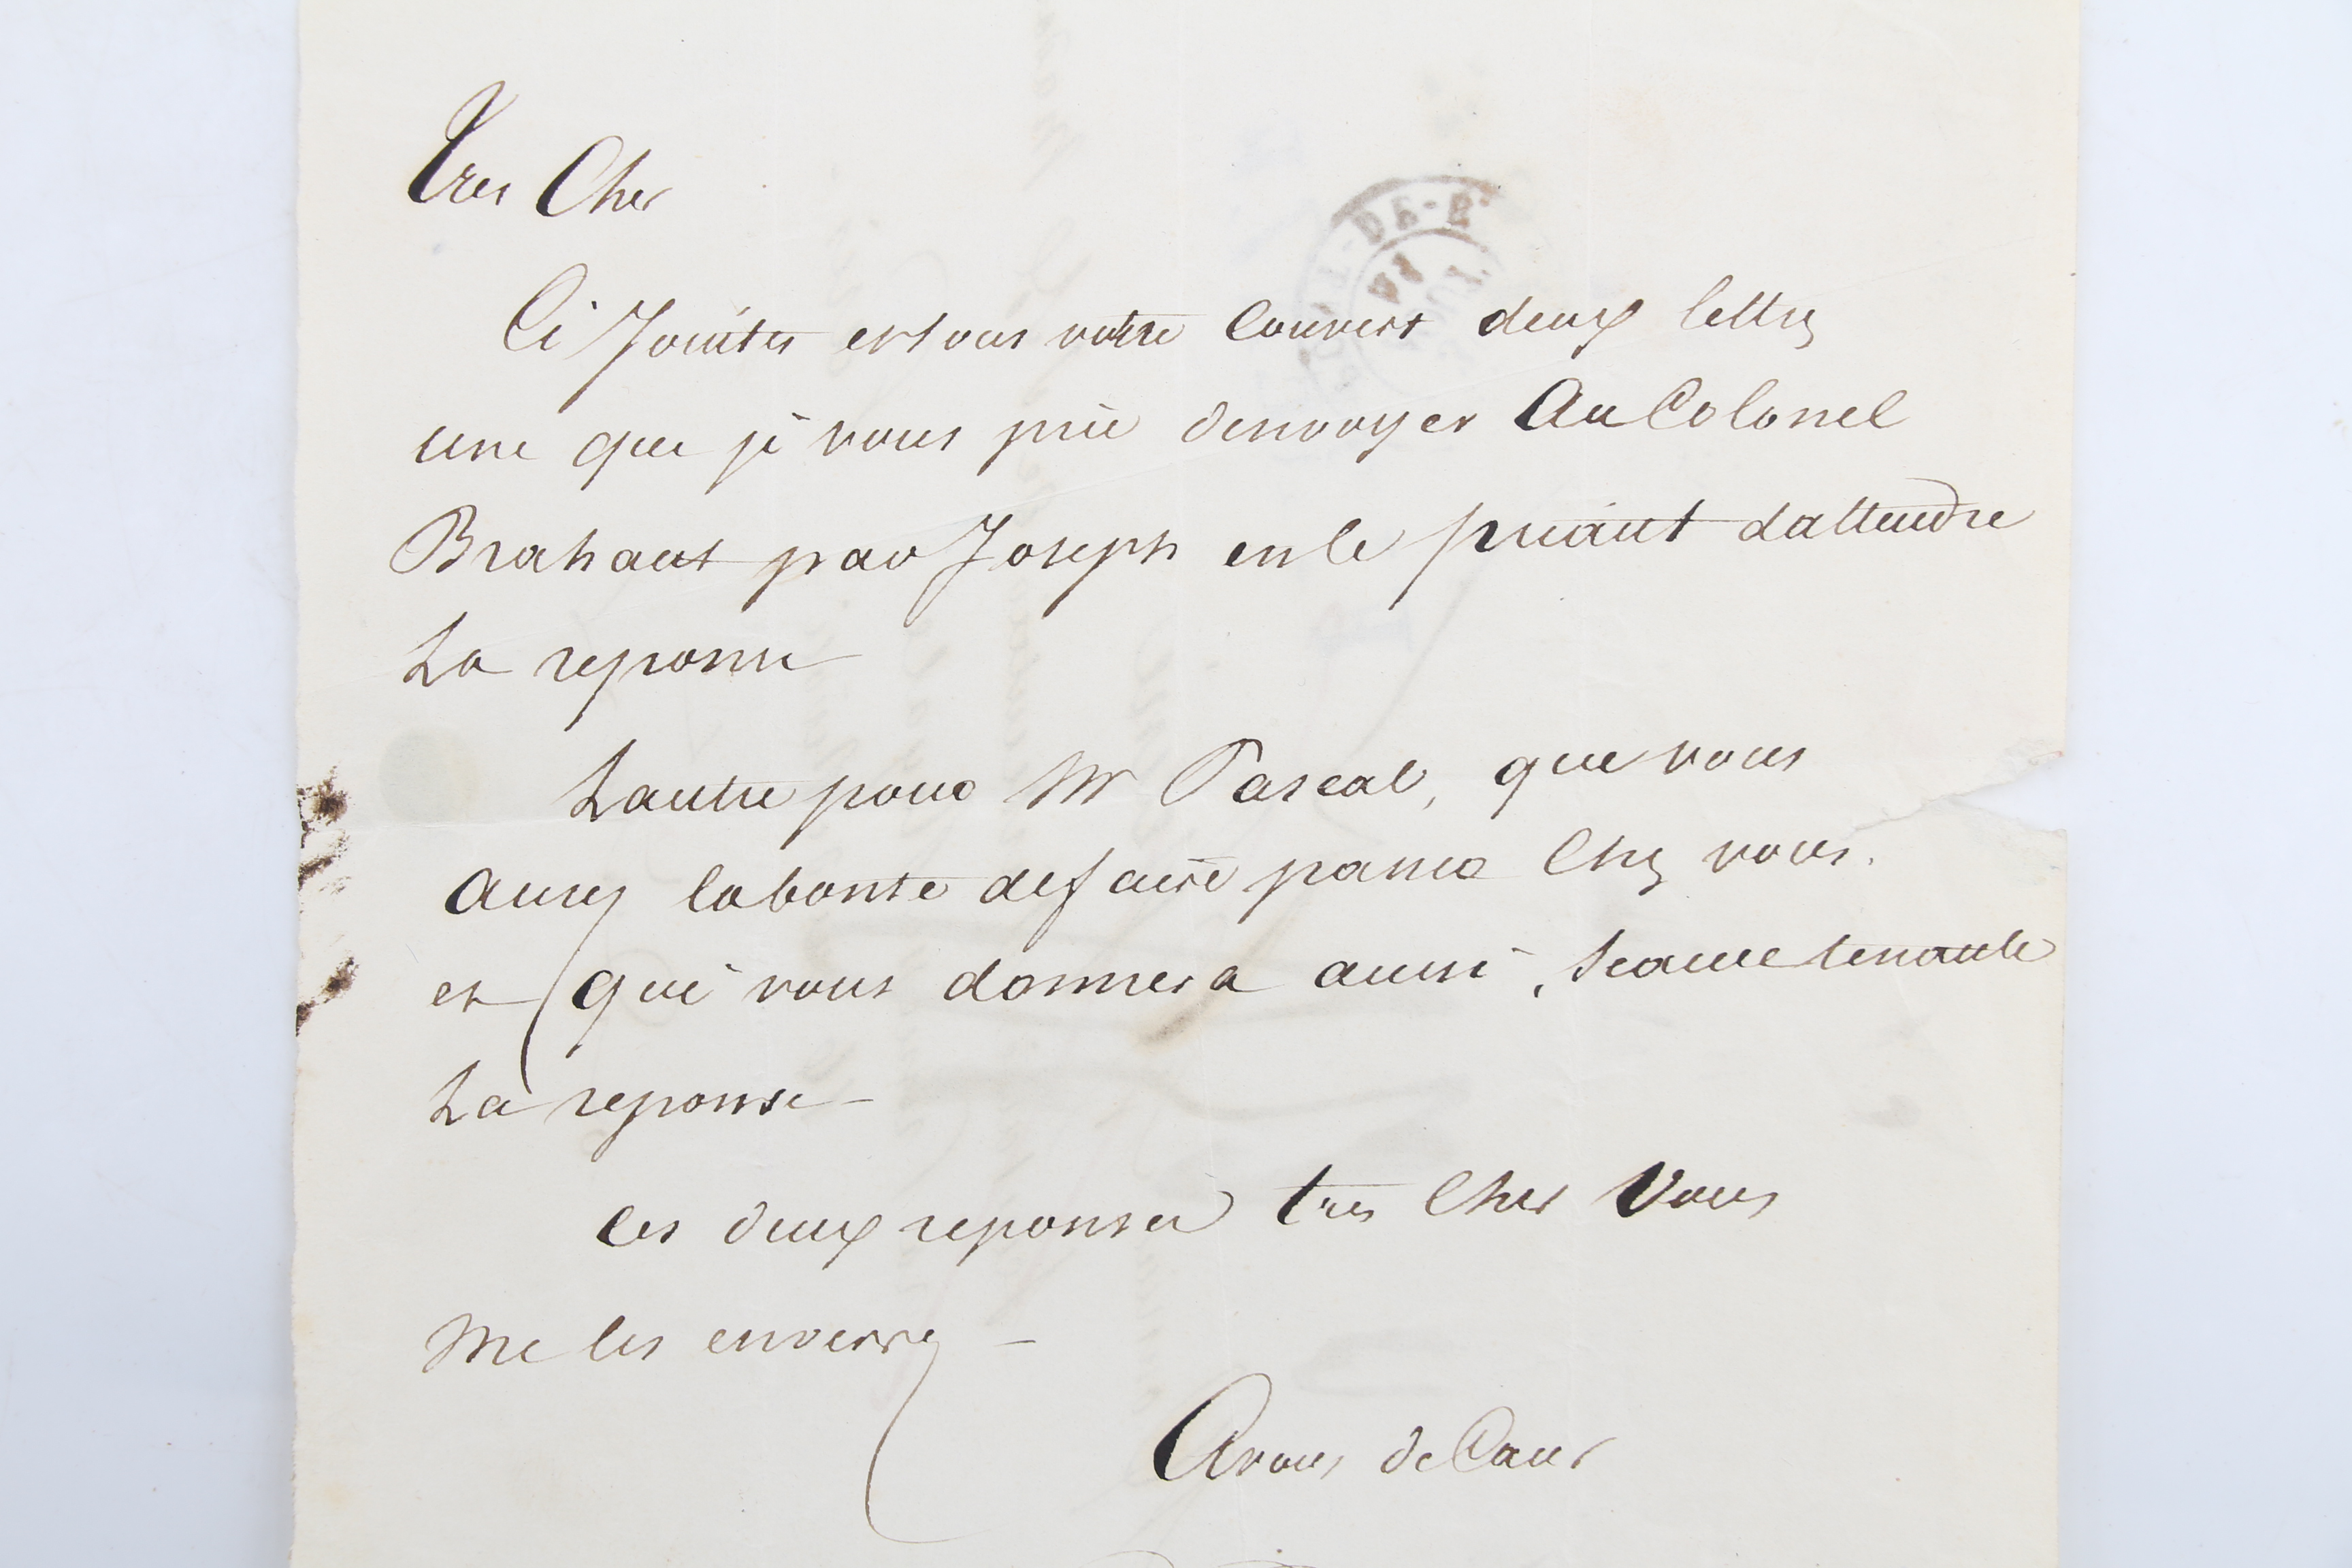 Tres Cher
Ci Jointes et sous votre Couvert deux lettres
une que je vous prie denvoyer Au Colonel
Brahaut par Joseph en le priant dattendre
La reponse
Lautre pour Mr Pascal, que vous
aurez la bonte de faire passer Chez vous.
et qui vous donnera aussi, seance tenante
La reponse -
Ces deux reponses tres Cher Vous
Me les enverrez -
A vous de Cœur